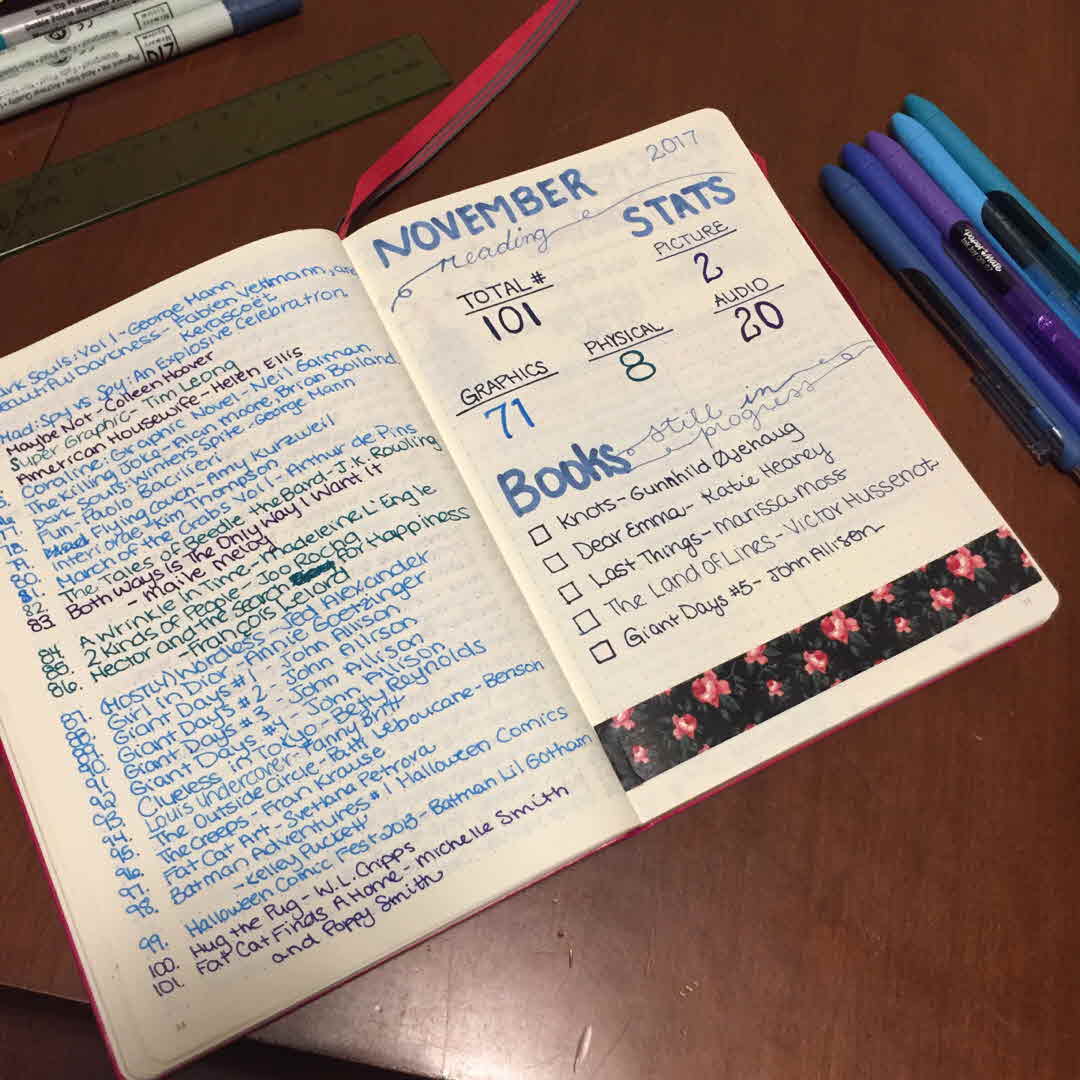 Dark Souls: Vol 1 - George Mann
Beautiful Darkness - Fabien Vehlmann, and
Kerascoët
Mad: Spy vs Spy: An Explosive Celebration
Maybe Not - Colleen Hoover
Super Graphic - Tim Leong
American Housewife - Helen Ellis
Coraline: Graphic Novel - Neil Gaiman
The Killing Joke - Alan Moore, Brian Bolland
Dark Souls: Winter's Spite - George Mann
Fun - Paolo Bacilieri
Flying Couch - Amy Kurzweil
Interiorae - Kim Thompson
80. March of the Crabs Vol 1 - Arthur de Pins
82. The Tales of Beedle the Bard - J.K. Rowling
83. Both Ways is The Only Way I Want it
- Maile Meloy
84. A Wrinkle in Time - Madeleine L'Engle
85. 2 Kinds of People - Joo Rocha
86. Hector and the Search For Happiness
- Francois Lelord
87. (Mostly) Wordless - Jed Alexander
Girl in Dior - Annie Goetzinger
Giant Days #1 - John Allison
Giant Days #2 - John Allison
91. Giant Days #3 - John Allison
92. Giant Days #4 - John Allison
93. Clueless in Tokyo - Betty Reynolds
94. Louis Undercover - Fanny Britt
95. The Outside Circle - Patti Leboucane - Benson
96. The Creeps - Fran Krause
97. Fat Cat Art - Svetlana Petrova
98. Batman Adventures #1 Halloween Comics
- Kelley Puckett
99. Halloween Comic Fest 2013 - Batman Lil Gotham
100. Hug the Pug - W.L. Cripps
101. Fat Cat Finds A Home - Michelle Smith
and Poppy Smith
2017
NOVEMBER
reading
STATS
TOTAL #
101
PICTURE
2
PHYSICAL
8
AUDIO
20
GRAPHICS
71
Books still in
progress
Knots - Gunnhild Øyehaug
Dear Emma - Katie Heaney
Last Things - Marissa Moss
The Land of Lines - Victor Hussenot
Giant Days #5 - John Allison
Paper Mate